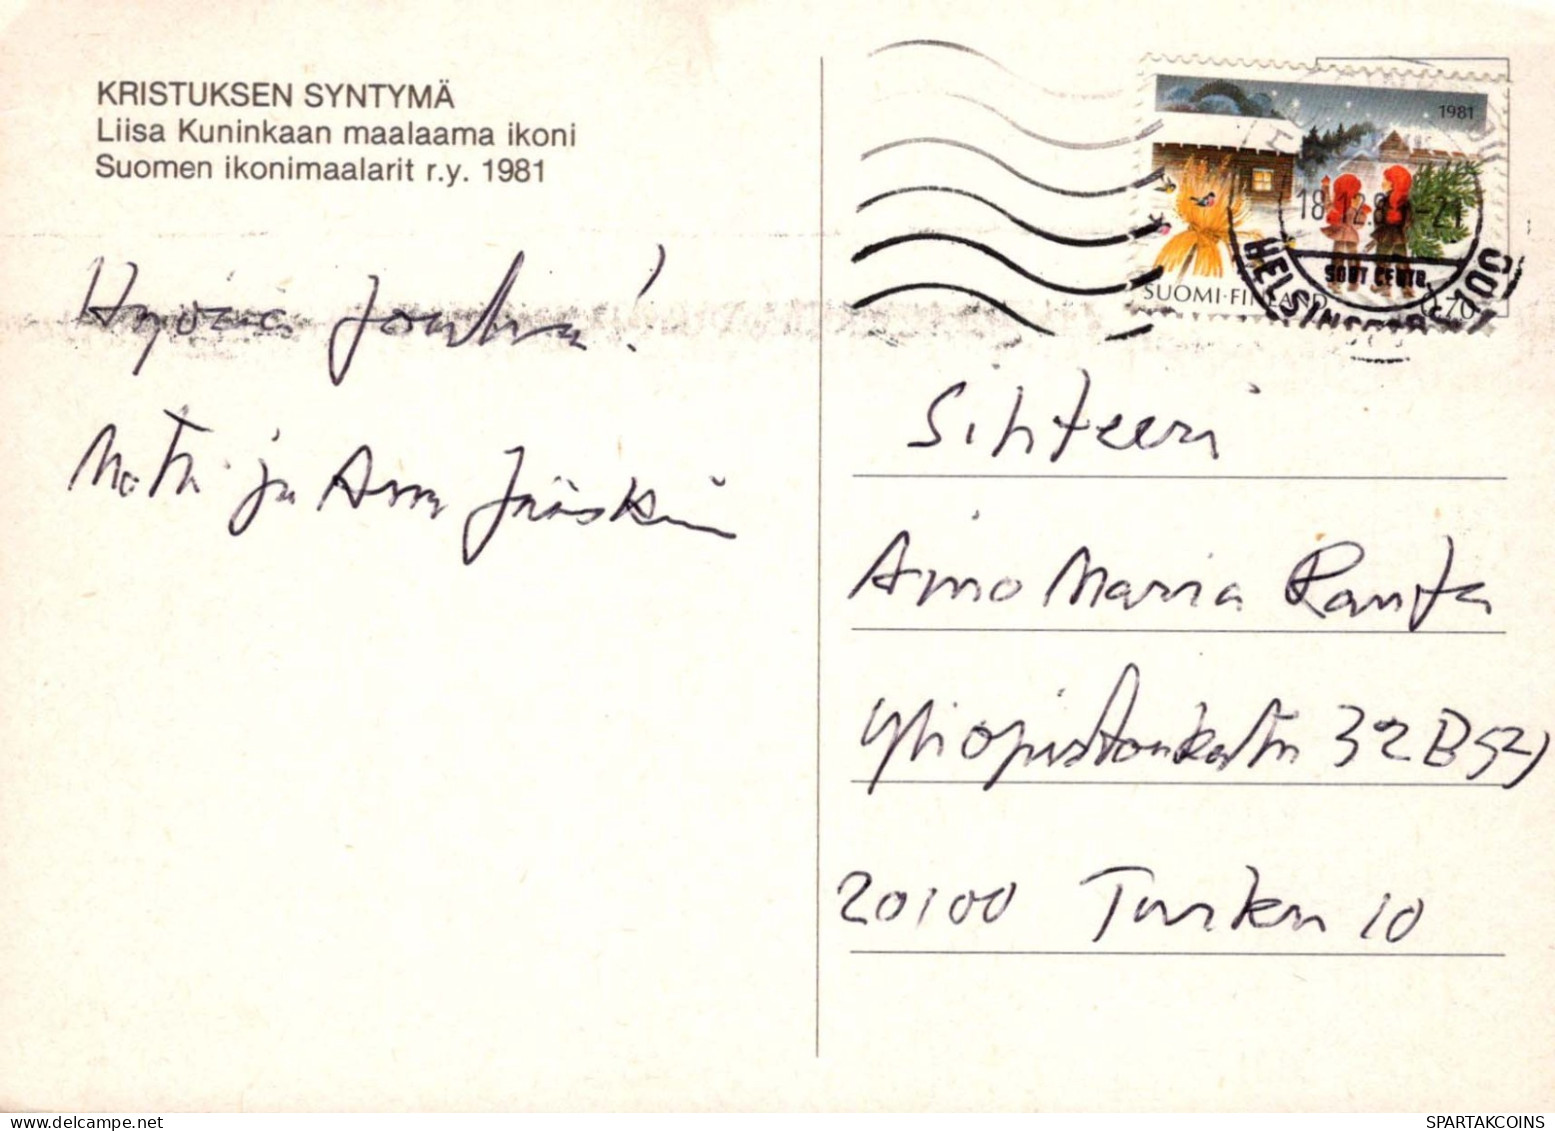 KRISTUKSEN SYNTYMÄ
Liisa Kuninkaan maalaama ikoni
Suomen ikonimaalarit r.y. 1981
Hyvää Joulua!
Matti ja Anna Jääskin
1981
18.12.8
SORT CENTR.
HELSINGFORS
100
SUOMI·FINLAND
0,70
Sihteeri
Aino Maria Ranta
Yliopistonkatu 32 B 52)
20100 Turku 10
SPARTAKCOINS